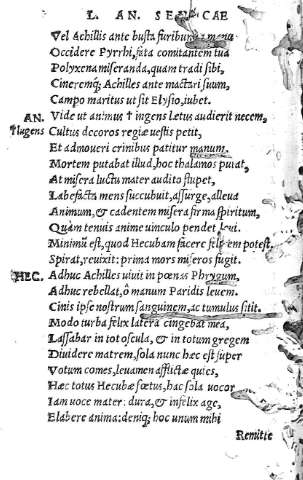 L. AN. SENECAE
Vel Achillis ante busta furibunda manu
Occidere Pyrrhi, fata comitantem tua
Polyxena miseranda, quam tradi sibi,
Cineremq; Achilles ante mactari suum,
Campo maritus ut sit Elysio, iubet.
AN. Vide ut animus † ingens Letus audierit necem,
†lugens Cultus decoros regiae uestis petit,
Et admoueri crinibus patitur manum.
Mortem putabat illud, hoc thalamos putat,
At misera luctu mater audito stupet,
Labefacta mens succubuit, assurge, alleua
Animum, & cadentem misera firma spiritum,
Quàm tenuis anime uinculo pendet leui.
Minimū est, quod Hecubam facere felicem potest,
Spirat, reuixit: prima mors miseros fugit.
HEC. Adhuc Achilles uiuit in poenas Phrygum,
Adhuc rebellat, ô manum Paridis leuem.
Cinis ipse nostrum sanguinem, ac tumulus sitit.
Modo turba felix latera cingebat mea,
Lassabar in tot oscula, & in totum gregem
Diuidere matrem, sola nunc haec est super
Votum comes, leuamen afflictae quies,
Haec totus Hecubae foetus, hac sola uocor
Iam uoce mater: dura, & infelix age,
Elabere anima: deniq; hoc unum mihi
Remitte